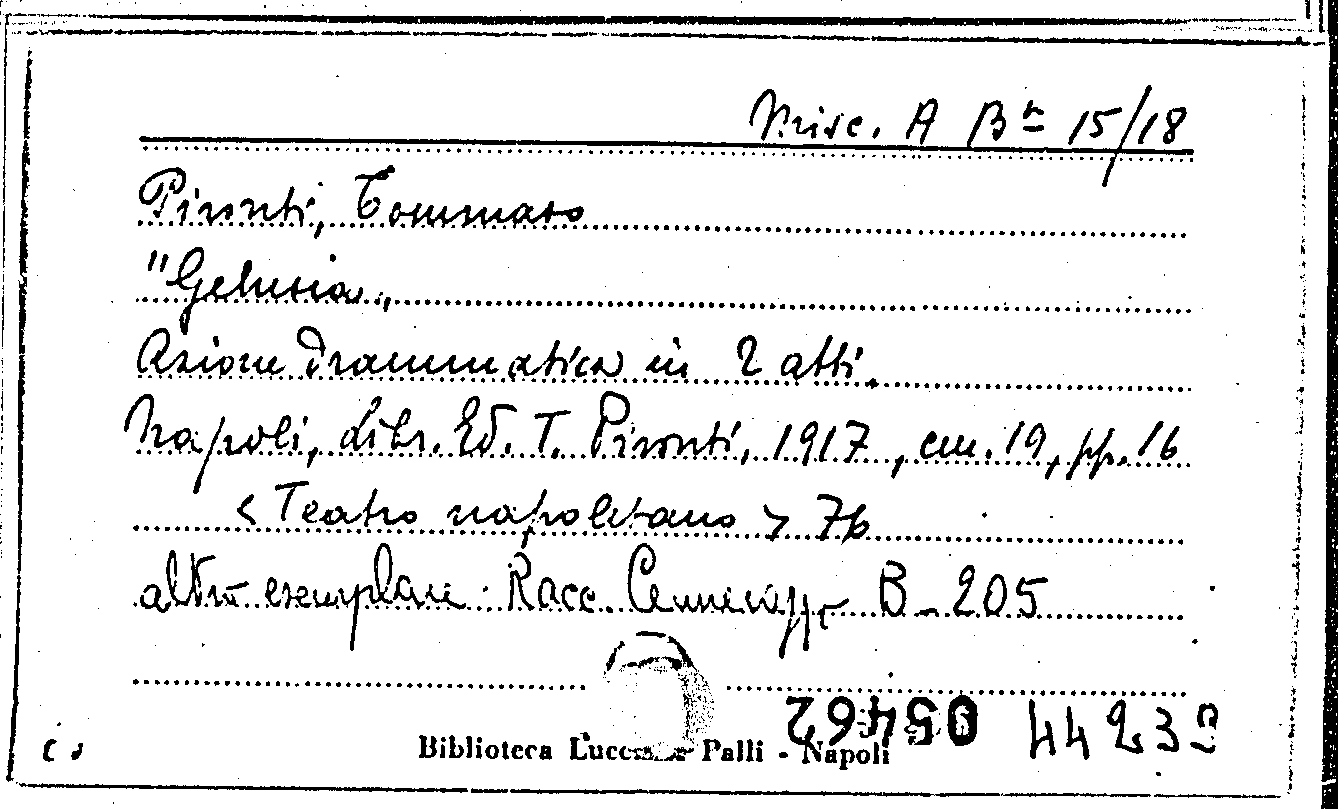 Misc. A Bᵃ 15/18
Pironti, Tommaso
"Gelusia„
Azione drammatica in 2 atti.
Napoli, Libr. Ed. T. Pironti, 1917, cm. 19, pp. 16
< Teatro napoletano > 76
altro esemplare: Racc. B - 205
05462 44239
Biblioteca Palli - Napoli